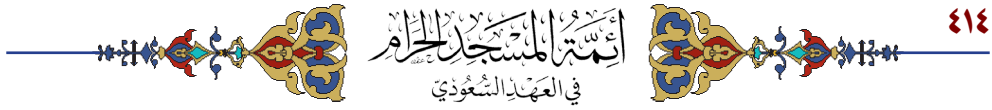 ٤١٤
أَئِمَّةُ المَسْجِدِ الحَرَامِ
في العَهْدِ السُّعُوْدِيّ